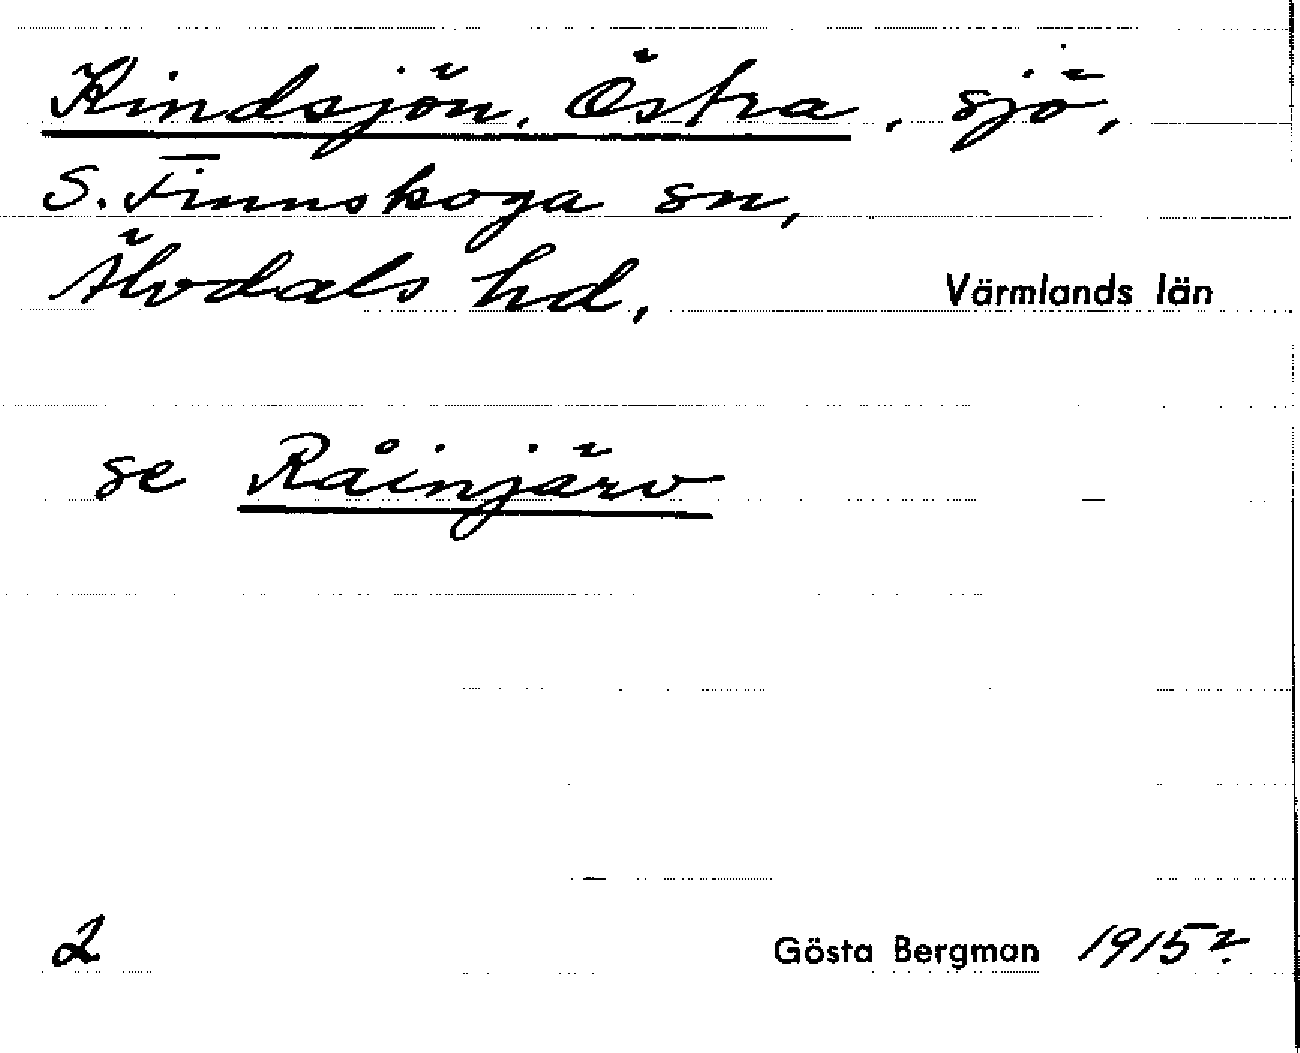 Kindsjön, Östra, sjö,
S. Finnskoga sn,
Älvdals hd, Värmlands län
se Råinjärv
2 Gösta Bergman 1915?